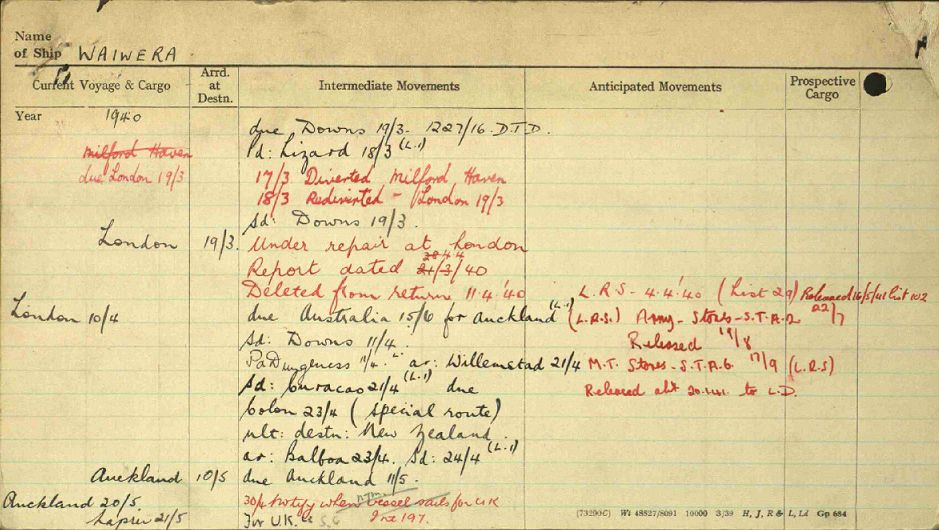 Name
of Ship WAIWERA
Current Voyage & Cargo Arrd. at Destn. Intermediate Movements Anticipated Movements Prospective Cargo
Year 1940
due Downs 19/3 - 1227/16. D.T.D.
Milford Haven Pd: Lizard 18/3 (L.1)
due London 19/3 17/3 Diverted Milford Haven
18/3 Rediverted - London 19/3
Sd: Downs 19/3.
London 19/3. Under repair at London
28 4.4
Report dated 21/3/40
Deleted from return 11.4.'40 L.R.S - 4.4.'40 (List 29) Released 16/5/41 list 102
London 10/4 due Australia 15/6 for Auckland (L.1) (L.R.S.) Army - Stores - S.T.A.2 22/7
Sd: Downs 11/4 Released 19/8
Pd Dungeness 11/4 L. ar: Willemstad 21/4 M.T. Stores - S.T.A.6 17/9 (L.R.S)
Sd: Curacao 21/4 (L.1) due Released abt 20.1.41. to L.D.
Colon 23/4 (special route)
ult: destn: New Zealand
ar: Balboa 23/4. Sd: 24/4 (L.1)
Auckland 10/5 due Auckland 11/5.
Auckland 20/5. 30/4 Notify when vessel sails for UK
Napier 21/5 For U.K.
(73290C) Wt 48527/8091 10000 3/39 H, J, R & L, Ld Gp 684